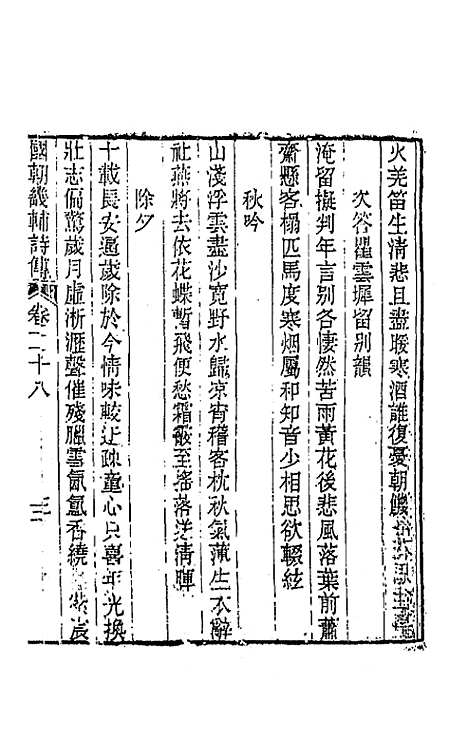 火羌笛生清悲且盡暖寒酒誰復憂朝饑
次答瞿雲墀留別韻
淹留擬判年言別各悽然苦雨黃花後悲風落葉前蕭
齋懸客榻匹馬度寒烟屬和知音少相思欲輟絃
秋吟
山淺浮雲盡沙寬野水歸凉宵稽客枕秋氣薄生衣辭
社燕將去依花蝶暫飛便愁霜霰至搖落送清暉
除夕
十載長安遍歲除於今情味較还疎童心只喜年光換
壯志偏驚歲月虛淅瀝聲催殘臘雪氤氳香繞
國朝畿輔詩傳 卷二十八 三